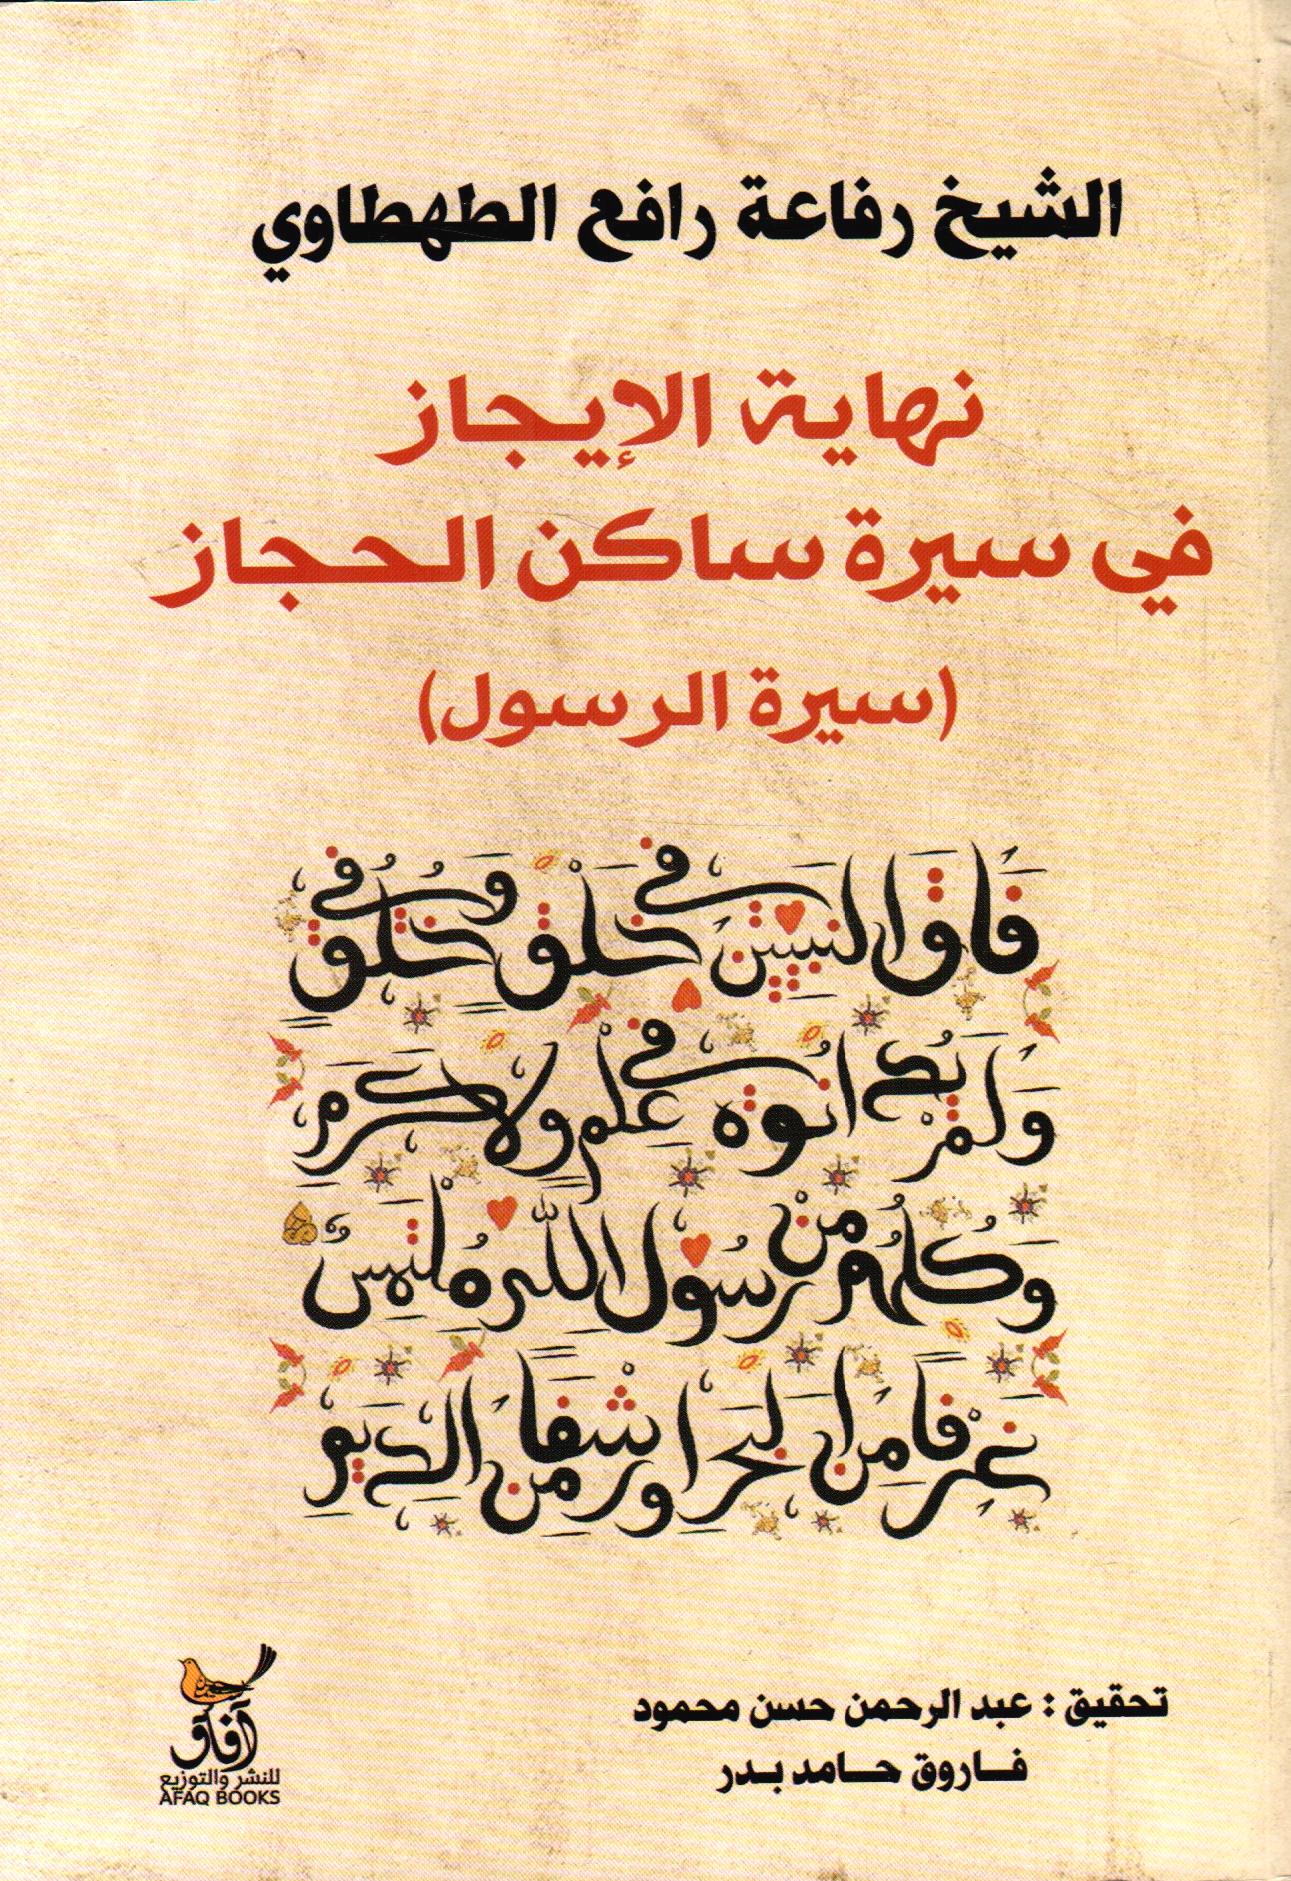 الشيخ رفاعة رافع الطهطاوي
نهاية الإيجاز
في سيرة ساكن الحجاز
(سيرة الرسول)
فَاقَ النبيين في خَلْقٍ وَفي خُلُقٍ
وَلَمْ يُدَانُوهُ في عِلْمٍ وَلا كَرَمِ
وَكُلُّهُمْ مِنْ رَسُولِ اللهِ مُلْتَمِسٌ
غَرْفًا مِنَ البَحْرِ أو رَشْفًا مِنَ الدِّيَمِ
تحقيق : عبد الرحمن حسن محمود
فاروق حامد بدر
آفاق
للنشر والتوزيع
AFAQ BOOKS